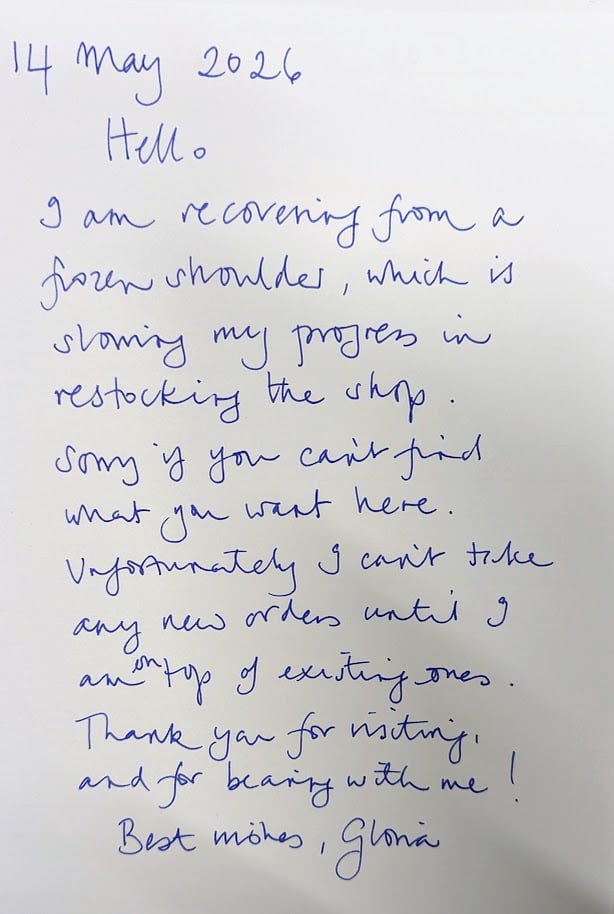 14 May 2026
Hello
I am recovering from a
frozen shoulder, which is
slowing my progress in
restocking the shop.
Sorry if you can't find
what you want here.
Unfortunately I can't take
any new orders until I
am on top of existing ones.
Thank you for visiting,
and for bearing with me!
Best wishes, Gloria